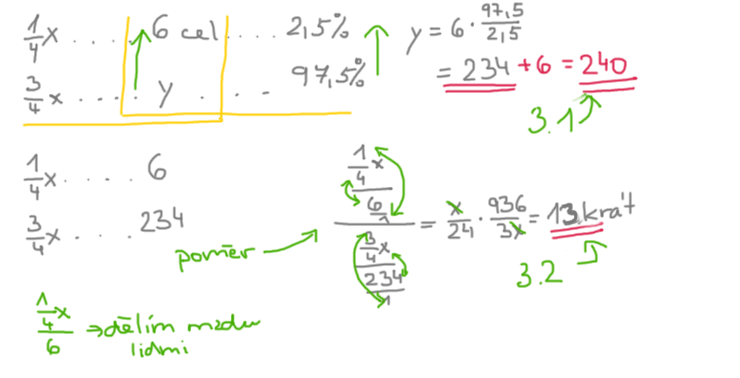 1/4 x .... 6 cel .... 2,5%
3/4 x .... y .... 97,5%
y = 6 · 97,5/2,5
= 234 + 6 = 240
3.1
1/4 x .... 6
3/4 x .... 234
poměr
(1/4 x)/(6/1) / (3/4 x)/(234/1) = x/24 · 936/3x = 13krát
3.2
(1/4 x)/6 → dělím mzdu
lidmi